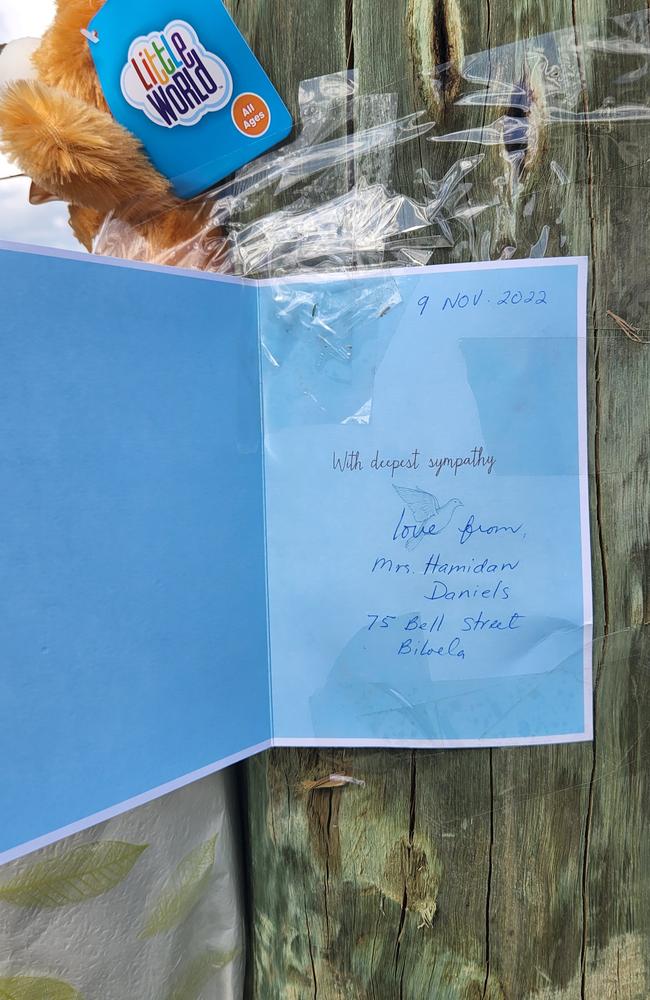 little
WORLD
All
Ages
9 NOV. 2022
With deepest sympathy
love from,
Mrs. Hamidan
Daniels
75 Bell Street
Biloela